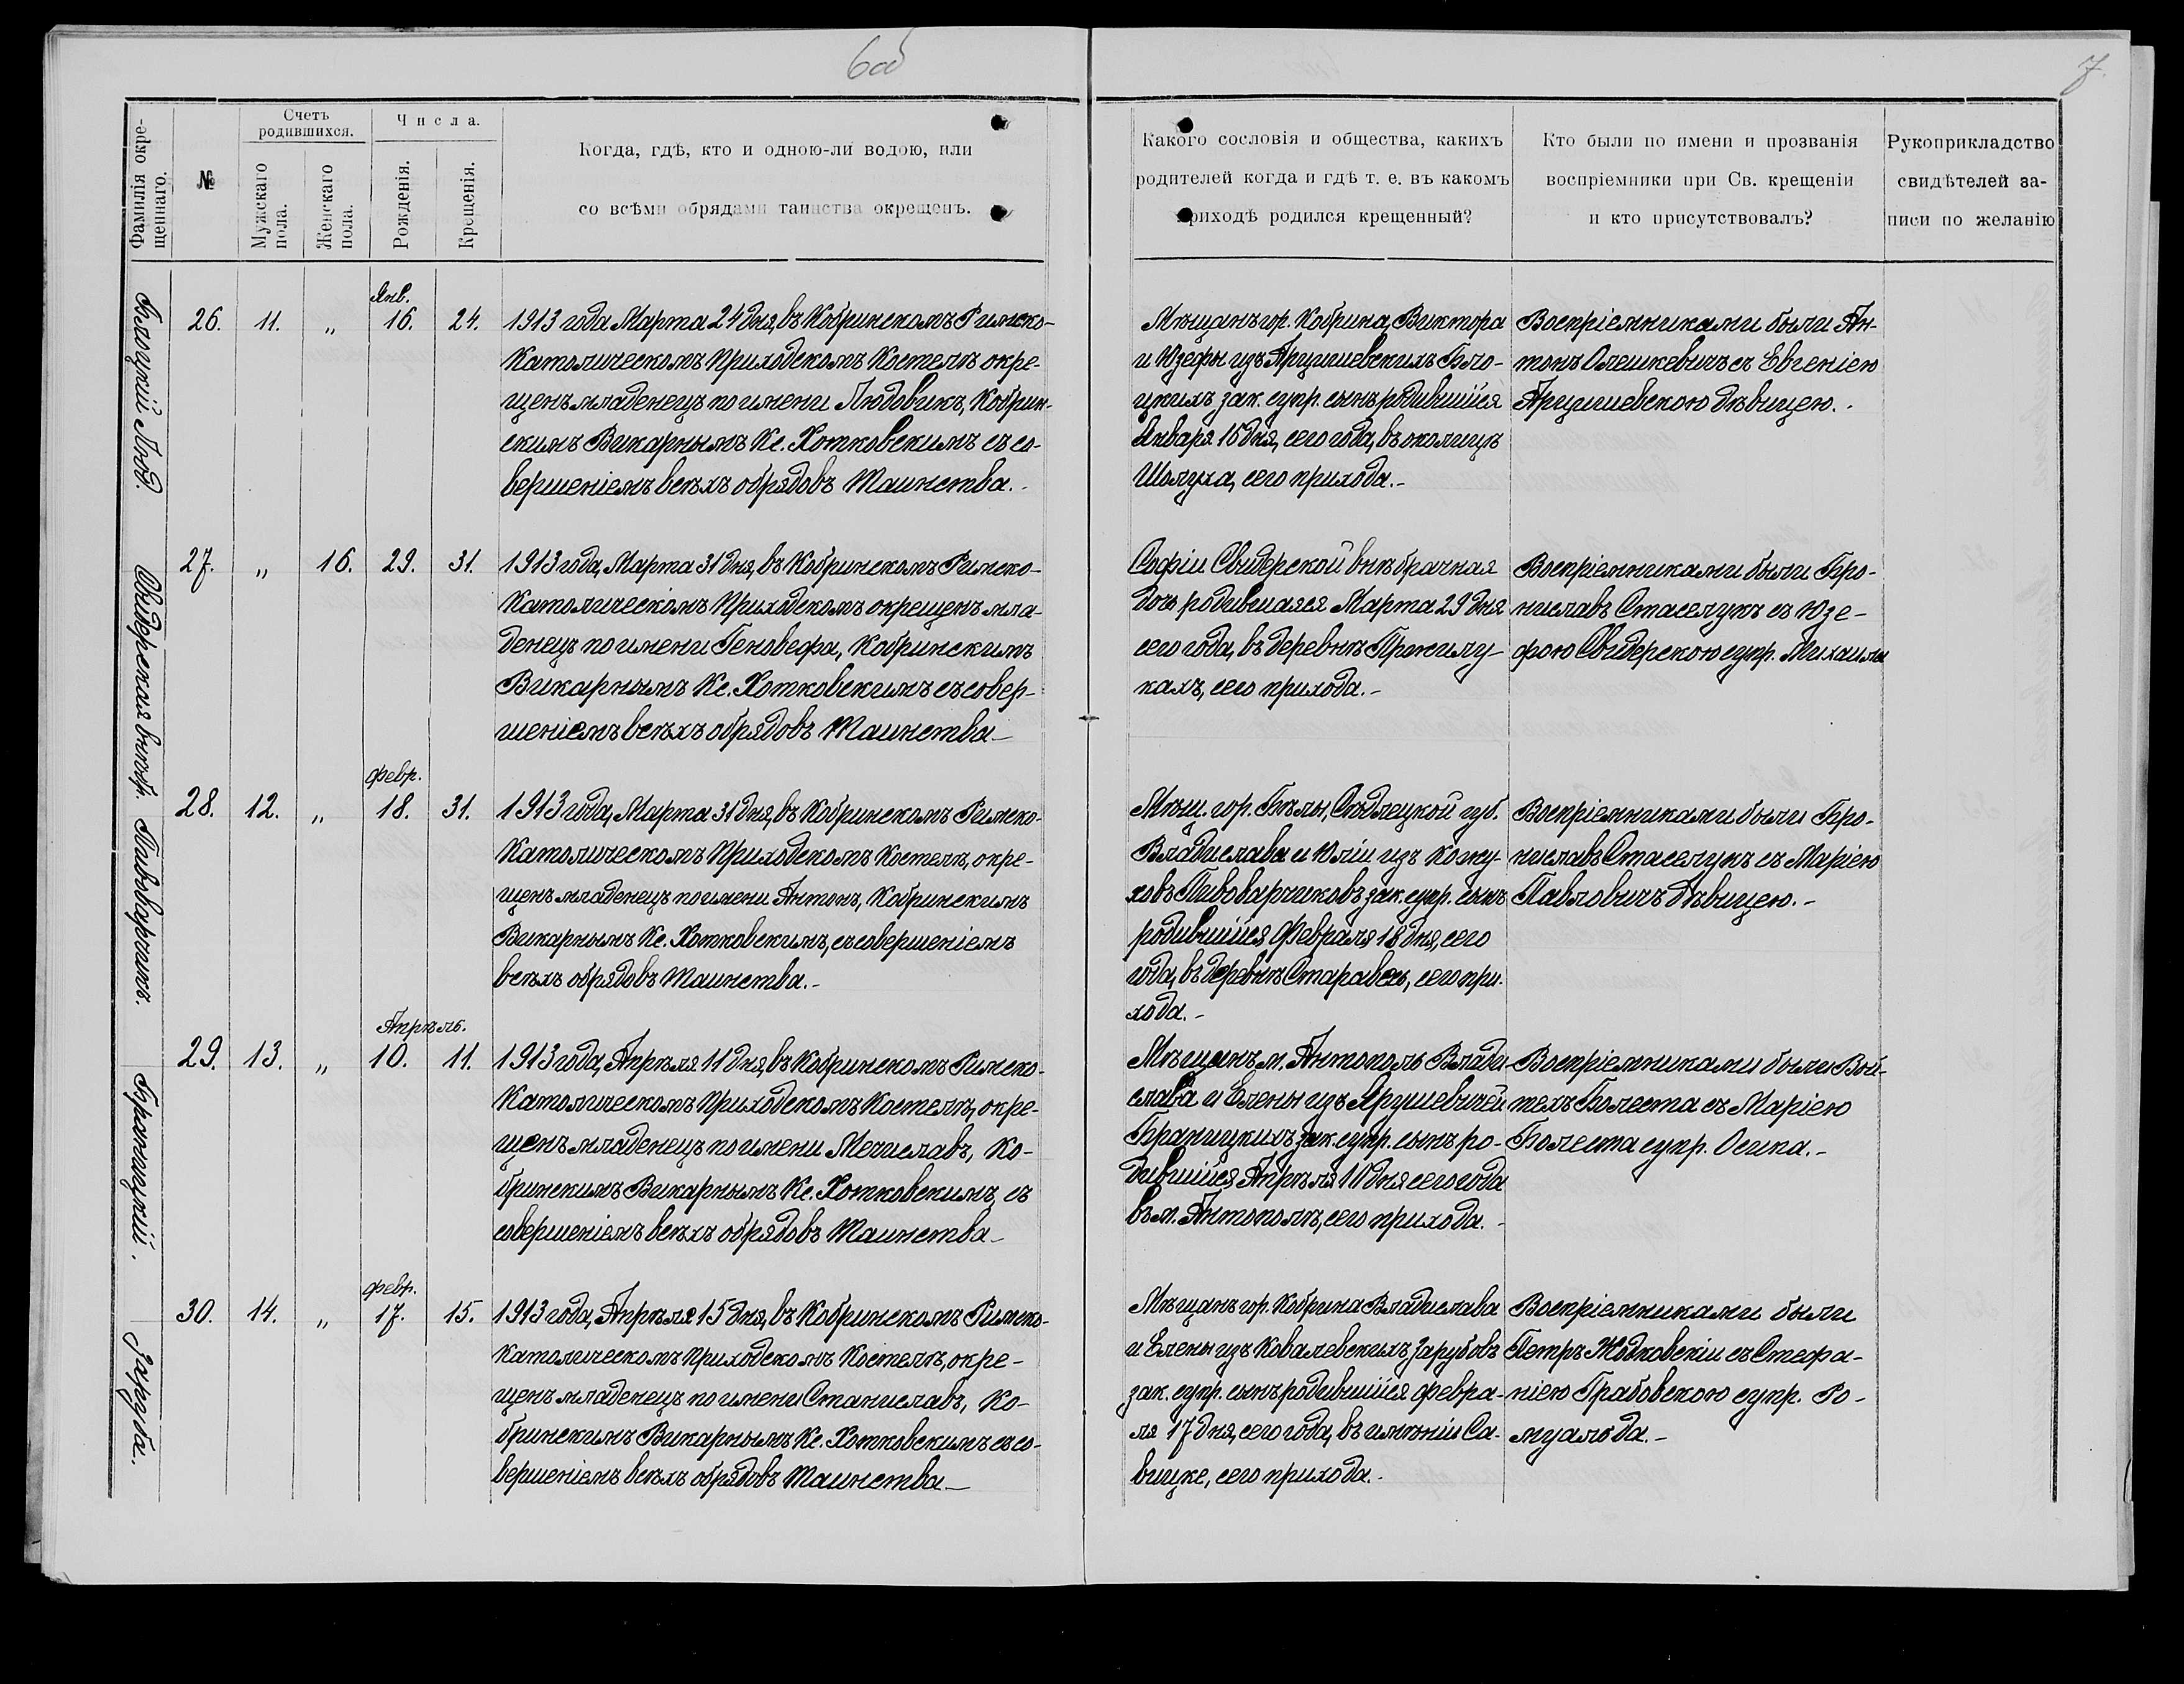 6об
7.
Фамилія окре-
щеннаго.
№
Счетъ
родившихся.
Мужскаго
пола.
Женскаго
пола.
Числа.
Рожденія.
Крещенія.
Когда, гдѣ, кто и одною-ли водою, или
со всѣми обрядами таинства окрещенъ.
Какого сословія и общества, какихъ
родителей когда и гдѣ т. е. въ какомъ
приходѣ родился крещенный?
Кто были по имени и прозванія
воспріемники при Св. крещеніи
и кто присутствовалъ?
Рукоприкладство
свидѣтелей за-
писи по желанію
Блоцкій Люд.
Янв.
26. 11. „ 16. 24.
1913 года Марта 24 дня, въ Кобринскомъ Римско-
Католическомъ Приходскомъ Костелѣ окре-
щенъ младенецъ по имени Людовикъ, Кобрин-
скимъ Викарнымъ Кс. Хотковскимъ съ со-
вершеніемъ всѣхъ обрядовъ Таинства.-
Мѣщанъ гор. Кобрина, Виктора
и Юзефы изъ Арцишевскихъ Бло-
цкихъ зак. супр. сынъ родившійся
Января 16 дня, сего года, въ околицѣ
Шолуха, сего прихода.-
Воспріемниками были Ан-
тонъ Олешкевичъ съ Евгеніею
Арцишевскою дѣвицею.-
Свидерская внѣбр.
27. „ 16. 29. 31.
1913 года, Марта 31 дня, въ Кобринскомъ Римско-
Католическомъ Приходскомъ окрещенъ мла-
денецъ по имени Геновефа, Кобринскимъ
Викарнымъ Кс. Хотковскимъ съ совер-
шеніемъ всѣхъ обрядовъ Таинства-
Софіи Свидерской внѣбрачная
дочь родившаяся Марта 29 дня
сего года, въ деревнѣ Прилу-
кахъ, сего прихода.-
Воспріемниками были Бро-
ниславъ Стаселукъ съ Юзе-
фою Свидерскою супр. Михаила
Пивоварчикъ.
Февр.
28. 12. „ 18. 31.
1913 года, Марта 31 дня, въ Кобринскомъ Римско-
Католическомъ Приходскомъ Костелѣ, окре-
щенъ младенецъ по имени Антонъ, Кобринскимъ
Викарнымъ Кс. Хотковскимъ, съ совершеніемъ
всѣхъ обрядовъ Таинства.-
Мѣщ. гор. Бѣлы, Сѣдлецкой губ.
Владислава и Юліи изъ Кожу-
ховъ Пивоварчиковъ зак. супр. сынъ
родившійся Февраля 18 дня, сего
года, въ деревнѣ Старавесь, сего при-
хода.-
Воспріемниками были Бро-
ниславъ Стаселукъ съ Маріею
Павловичъ дѣвицею.-
Браницкій.
Апрѣль.
29. 13. „ 10. 11.
1913 года, Апрѣля 11 дня, въ Кобринскомъ Римско-
Католическомъ Приходскомъ Костелѣ, окре-
щенъ младенецъ по имени Мечиславъ, Ко-
бринскимъ Викарнымъ Кс. Хотковскимъ, съ
совершеніемъ всѣхъ обрядовъ Таинства-
Мѣщанъ м. Антополь Влади-
слава и Елены изъ Ярушевичей
Браницкихъ зак. супр. сынъ ро-
дившійся Апрѣля 10 дня сего года
въ м. Антополѣ, сего прихода.-
Воспріемниками были Вой-
техъ Болеста съ Маріею
Болеста супр. Осипа.-
Заруба.
Февр.
30. 14. „ 17. 15.
1913 года, Апрѣля 15 дня, въ Кобринскомъ Римско-
Католическомъ Приходскомъ Костелѣ, окре-
щенъ младенецъ по имени Станиславъ, Ко-
бринскимъ Викарнымъ Кс. Хотковскимъ съ со-
вершеніемъ всѣхъ обрядовъ Таинства-
Мѣщанъ гор. Кобрина Владислава
и Елены изъ Ковалевскихъ Зарубовъ
зак. супр. сынъ родившійся Февра-
ля 17 дня, сего года, въ имѣніи Са-
вицке, сего прихода.-
Воспріемниками были
Петръ Жодковскіи съ Стефа-
ніею Грабовскою супр. Ро-
муальда.-